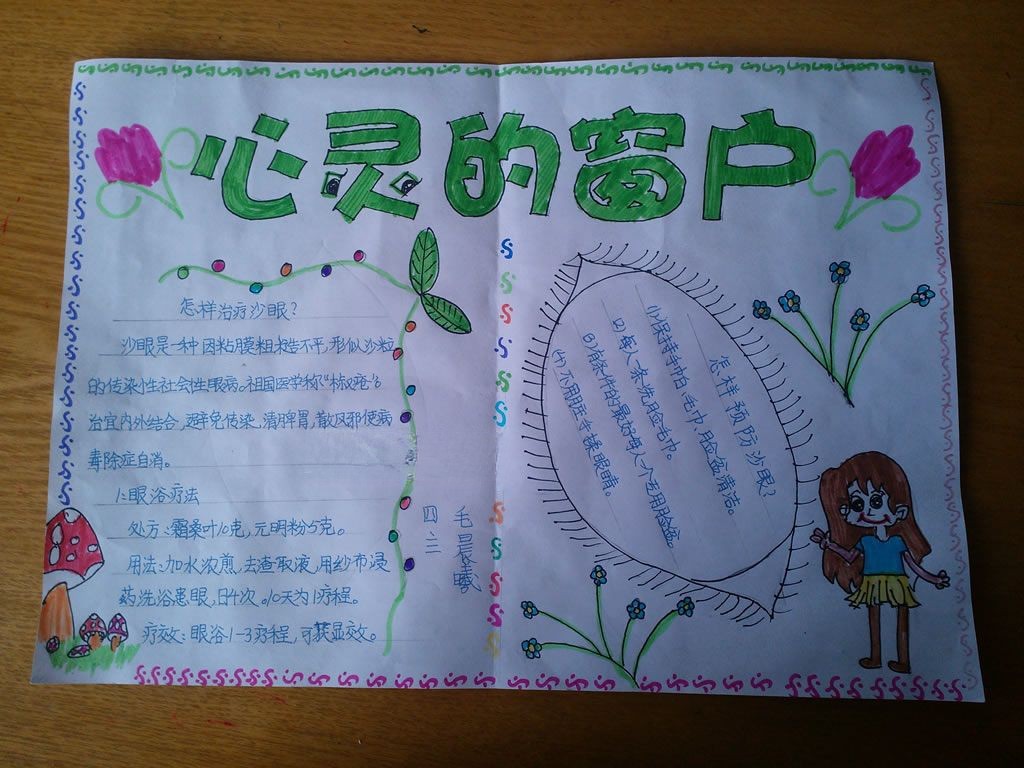 心灵的窗户
怎样治疗沙眼?
沙眼是一种因粘膜粗糙不平,形似沙粒
的传染性社会性眼病。祖国医学称“椒疮”。
治宜内外结合,避免传染,清脾胃,散风邪使病
毒除症自消。
1:眼浴疗法
处方:霜桑叶10克,元明粉5克。
用法:加水浓煎,去渣取液,用纱布浸
药洗浴患眼,日4次。10天为1疗程。
疗效:眼浴1-3疗程,可获显效。
四、三
毛晨曦
怎样预防沙眼?
(1)保持手帕、毛巾、脸盆清洁。
(2)每人一条洗脸毛巾。
(3)有条件的最好每人一个专用脸盆。
(4)不用脏手揉眼睛。